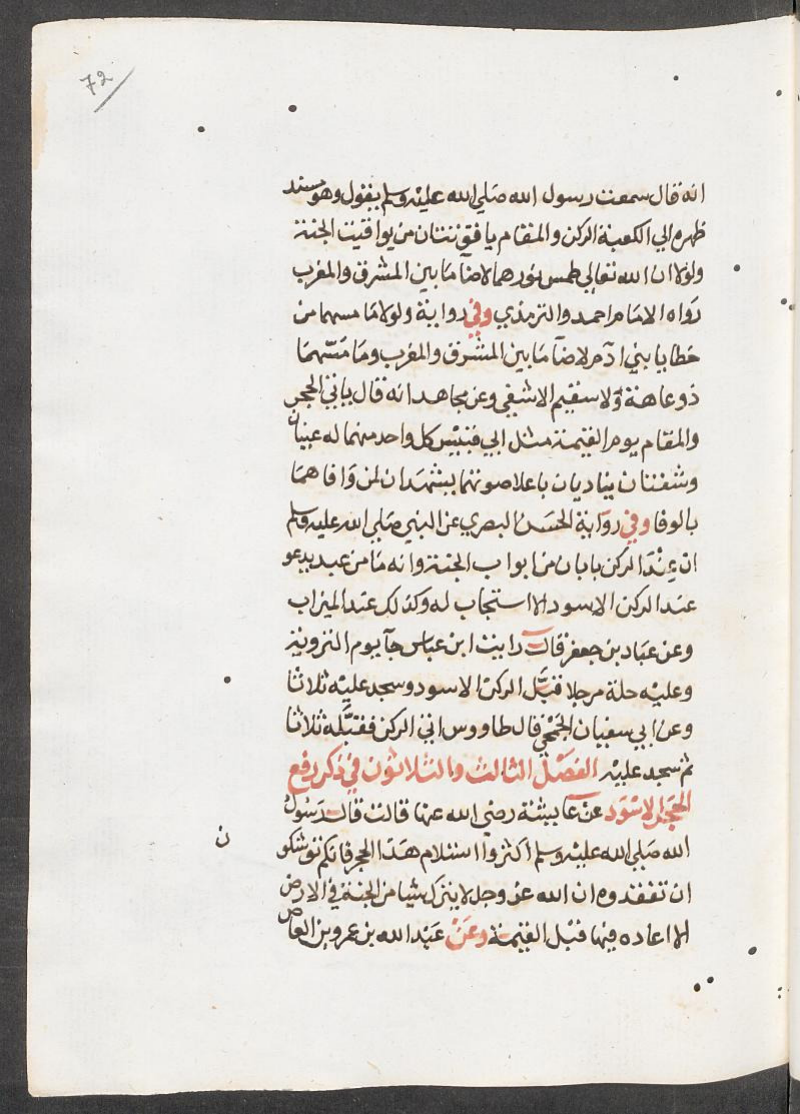 72
انه قال سمعت رسول الله صلي الله عليه وسلم يقول وهو مسند
ظهره الي الكعبة الركن والمقام ياقوتتان من يواقيت الجنة
ولولا ان الله تعالي طمس نورهما لاضاما بين المشرق والمغرب
رواه الامام احمد والترمذي وفي رواية ولولا ما مسهما من
خطايا بني ادم لاضآ ما بين المشرق والمغرب وما مسهما
ذو عاهة ولا سقيم الا شفي وعن مجاهد انه قال ياتي الحجر
والمقام يوم القيمة مثل ابي قبيس كل واحد منهما له عينان
وشفتان يناديان باعلا صوتهما يشهدان لمن وافاهما
بالوفا وفي رواية الحسن البصري عن النبي صلي الله عليه وسلم
ان عند الركن بابان من ابواب الجنة وانه ما من عبد يدعو
عند الركن الاسود الا استجاب له وكذلك عند الميزاب
وعن عباد بن جعفر قال رايت ابن عباس جآ يوم التروية
وعليه حلة مرجلا فقبل الركن الاسود وسجد عليه ثلاثا
وعن ابي سفيان الجمحي قال طاووس اتي الركن فقبله ثلاثا
ثم سجد عليه الفصل الثالث والثلاثون في ذكر رفع
الحجر الاسود عن عايشة رضي الله عنها قالت قال رسول
الله صلي الله عليه وسلم اكثروا استلام هذا الحجر فانكم توشكو
ن
ان تفقدوه ان الله عز وجل لا يترك شيا من الجنة في الارض
الا اعاده فيها قبل القيمة وعن عبد الله بن عمرو بن العاص